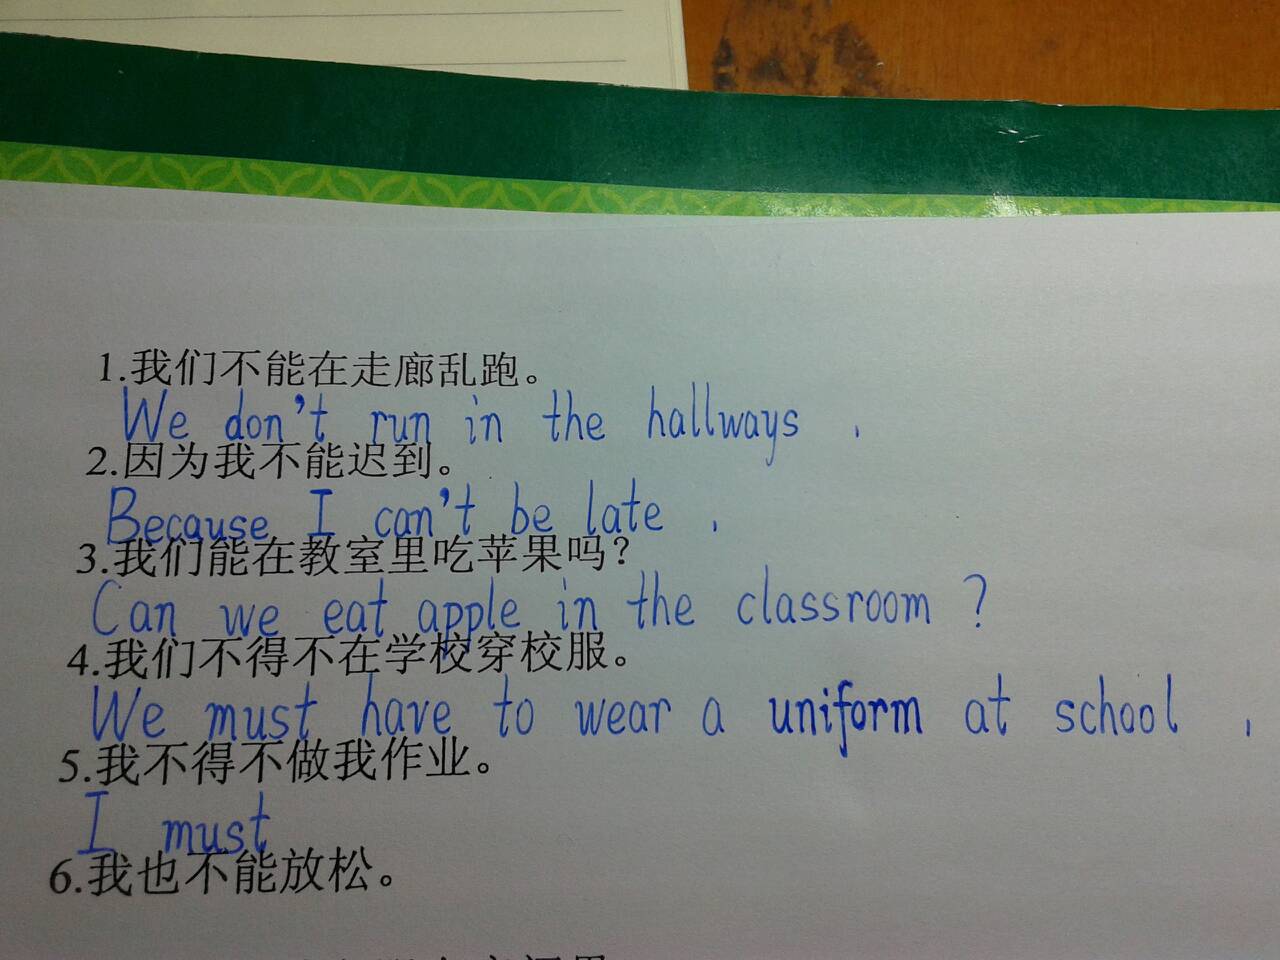 1.我们不能在走廊乱跑。
We don't run in the hallways .
2.因为我不能迟到。
Because I can't be late .
3.我们能在教室里吃苹果吗？
Can we eat apple in the classroom ?
4.我们不得不在学校穿校服。
We must have to wear a uniform at school .
5.我不得不做我作业。
I must
6.我也不能放松。